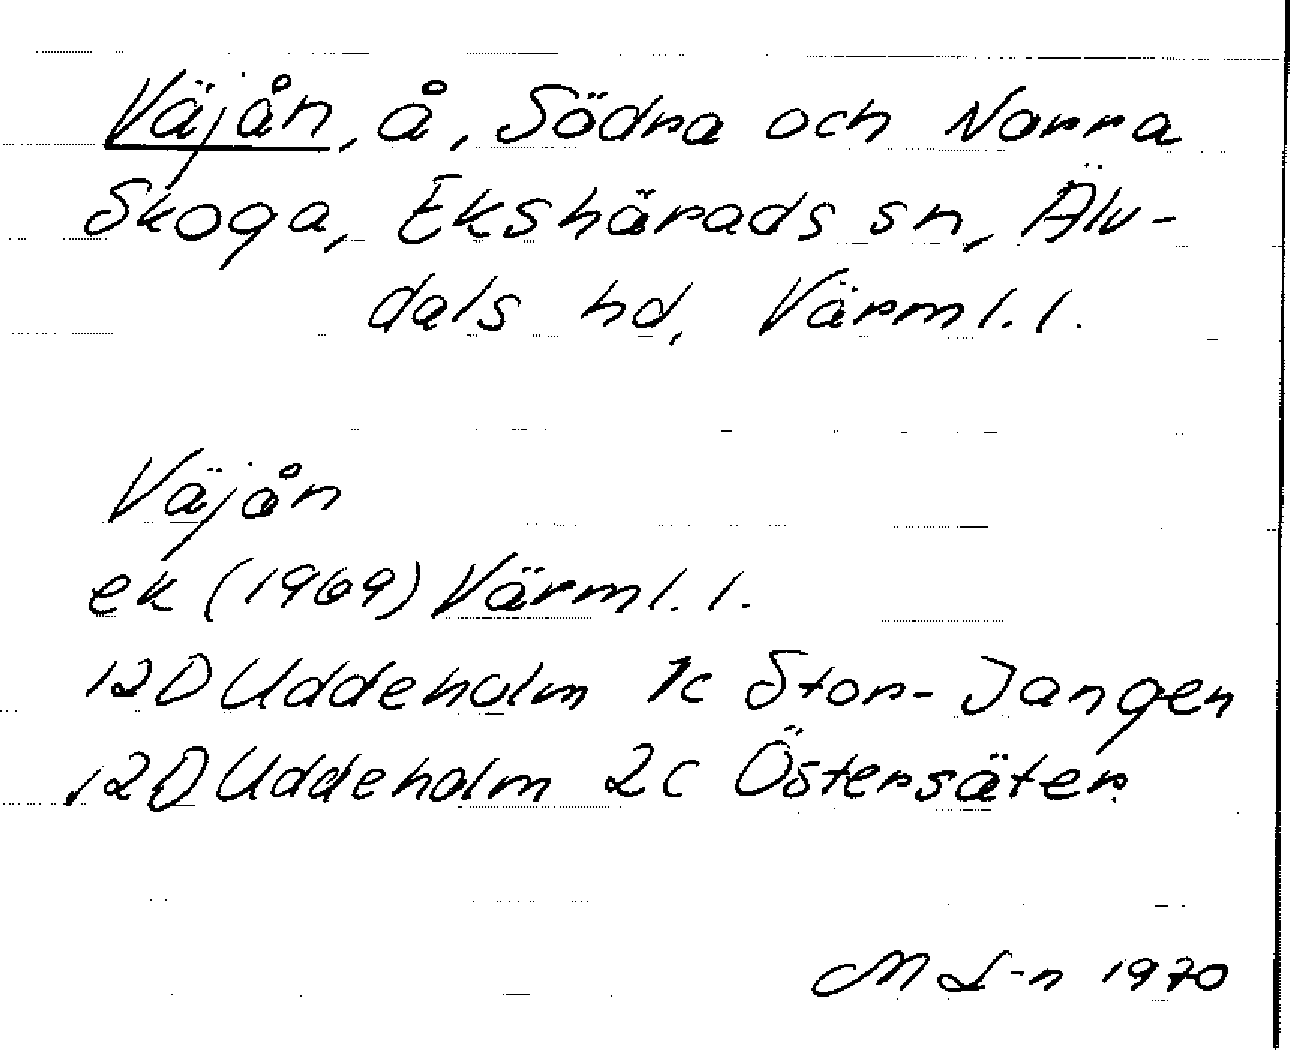 Väjån, å, Södra och Norra
Skoga, Ekshärads sn, Älv-
dals hd, Värml. l.
Väjån
ek (1969) Värml. l.
12D Uddeholm 1c Stor-Jangen
12D Uddeholm 2c Östersäter
M L-n 1970